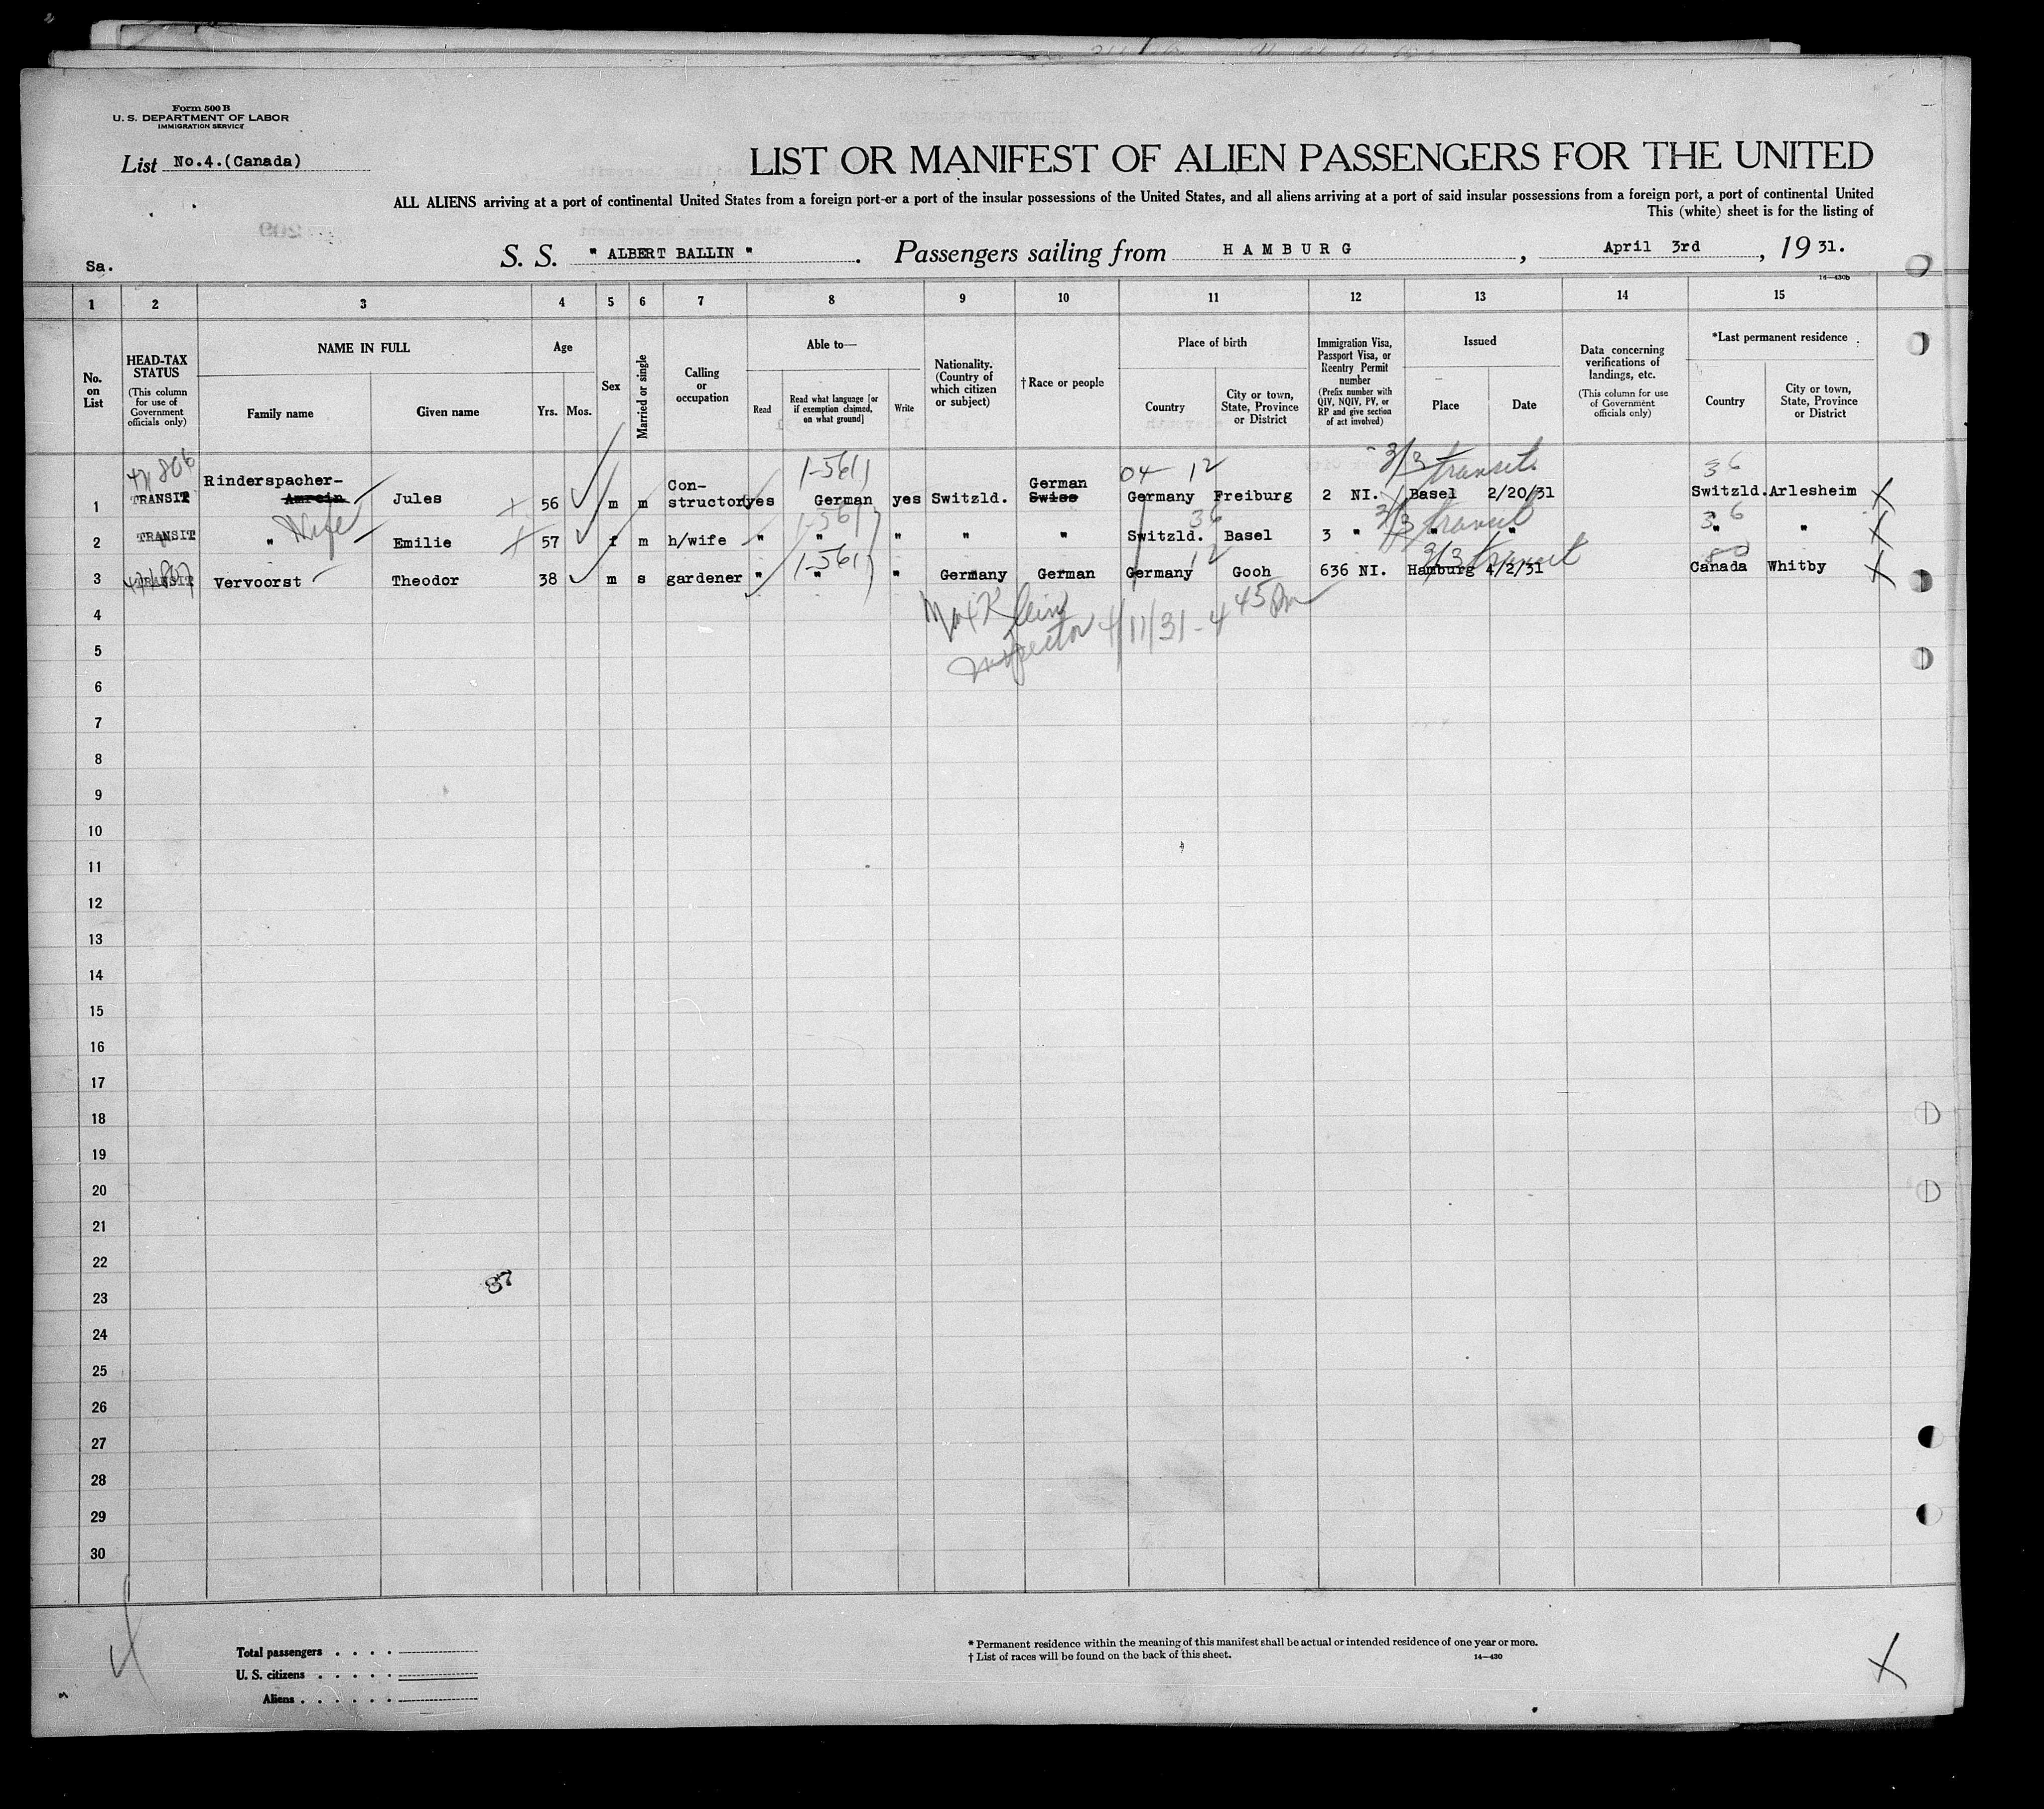 Form 500 B
U. S. DEPARTMENT OF LABOR
IMMIGRATION SERVICE
List No.4.(Canada)
LIST OR MANIFEST OF ALIEN PASSENGERS FOR THE UNITED
ALL ALIENS arriving at a port of continental United States from a foreign port or a port of the insular possessions of the United States, and all aliens arriving at a port of said insular possessions from a foreign port, a port of continental United
This (white) sheet is for the listing of
Sa.
S. S. " ALBERT BALLIN " . Passengers sailing from HAMBURG , April 3rd , 19 31.
14—430b
1 2 3 4 5 6 7 8 9 10 11 12 13 14 15
No. on List
HEAD-TAX STATUS
(This column for use of Government officials only)
NAME IN FULL
Family name
Given name
Age
Yrs. Mos.
Sex
Married or single
Calling or occupation
Able to—
Read
Read what language [or if exemption claimed, on what ground]
Write
Nationality. (Country of which citizen or subject)
†Race or people
Place of birth
Country
City or town, State, Province or District
Immigration Visa, Passport Visa, or Reentry Permit number
(Prefix number with QIV, NQIV, PV, or RP and give section of act involved)
Issued
Place
Date
Data concerning verifications of landings, etc.
(This column for use of Government officials only)
*Last permanent residence
Country
City or town, State, Province or District
1-561 04 12 3/3 transit 36
1 TRANSIT Rinderspacher- Amrein Jules 56 m m Con- structor yes German yes Switzld. German Swiss Germany Freiburg 2 NI. Basel 2/20/31 Switzld. Arlesheim
Wife 1-561 36 3/3 transit 36
2 TRANSIT " Emilie 57 f m h/wife " " " " " Switzld. Basel 3 " " " " "
1-561 12 3/3 transit
3 TRANSIT Vervoorst Theodor 38 m s gardener " " " Germany German Germany Gooh 636 NI. Hamburg 4/2/31 Canada Whitby
4
Max Klein
Inspector 4/11/31 - 4 45 Pm
5
6
7
8
9
10
11
12
13
14
15
16
17
18
19
20
21
22
87
23
24
25
26
27
28
29
30
Total passengers . . . .
U. S. citizens . . . . .
Aliens . . . . . .
* Permanent residence within the meaning of this manifest shall be actual or intended residence of one year or more.
† List of races will be found on the back of this sheet.
14—430